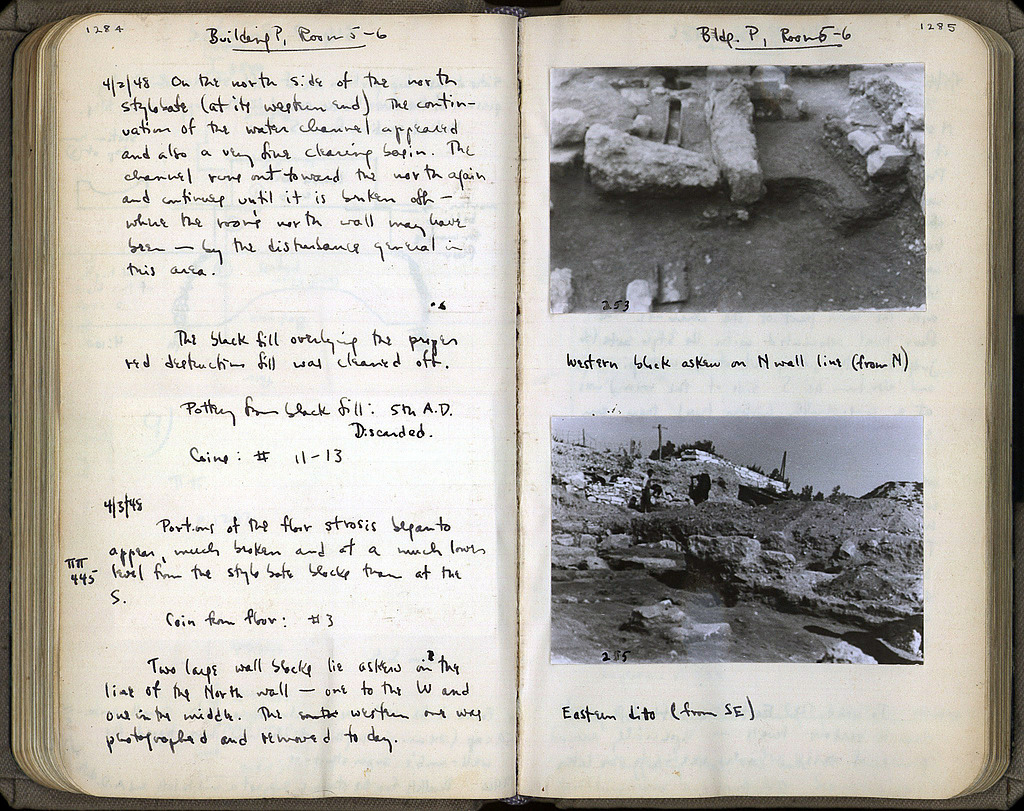 1284
Building P, Room 5-6
4/2/48 On the north side of the north
stylobate (at its western end) the contin-
uation of the water channel appeared
and also a very fine clearing basin. The
channel runs out toward the north again
and continues until it is broken off —
where the room's north wall may have
been — by the disturbance general in
this area.
The black fill overlying the proper
red destruction fill was cleaned off.
Pottery from black fill: 5th A.D.
Discarded.
Coins: # 11-13
4/3/48
Portions of the floor strosis began to
appear, much broken and at a much lower
level from the stylobate blocks than at the
S.
ΠΠ
445
Coin from floor: #3
Two large wall blocks lie askew in the
line of the North wall — one to the W and
one in the middle. The western one was
photographed and removed to day.
1285
Bldg. P, Room 5-6
253
Western block askew on N wall line (from N)
255
Eastern ditto (from SE)